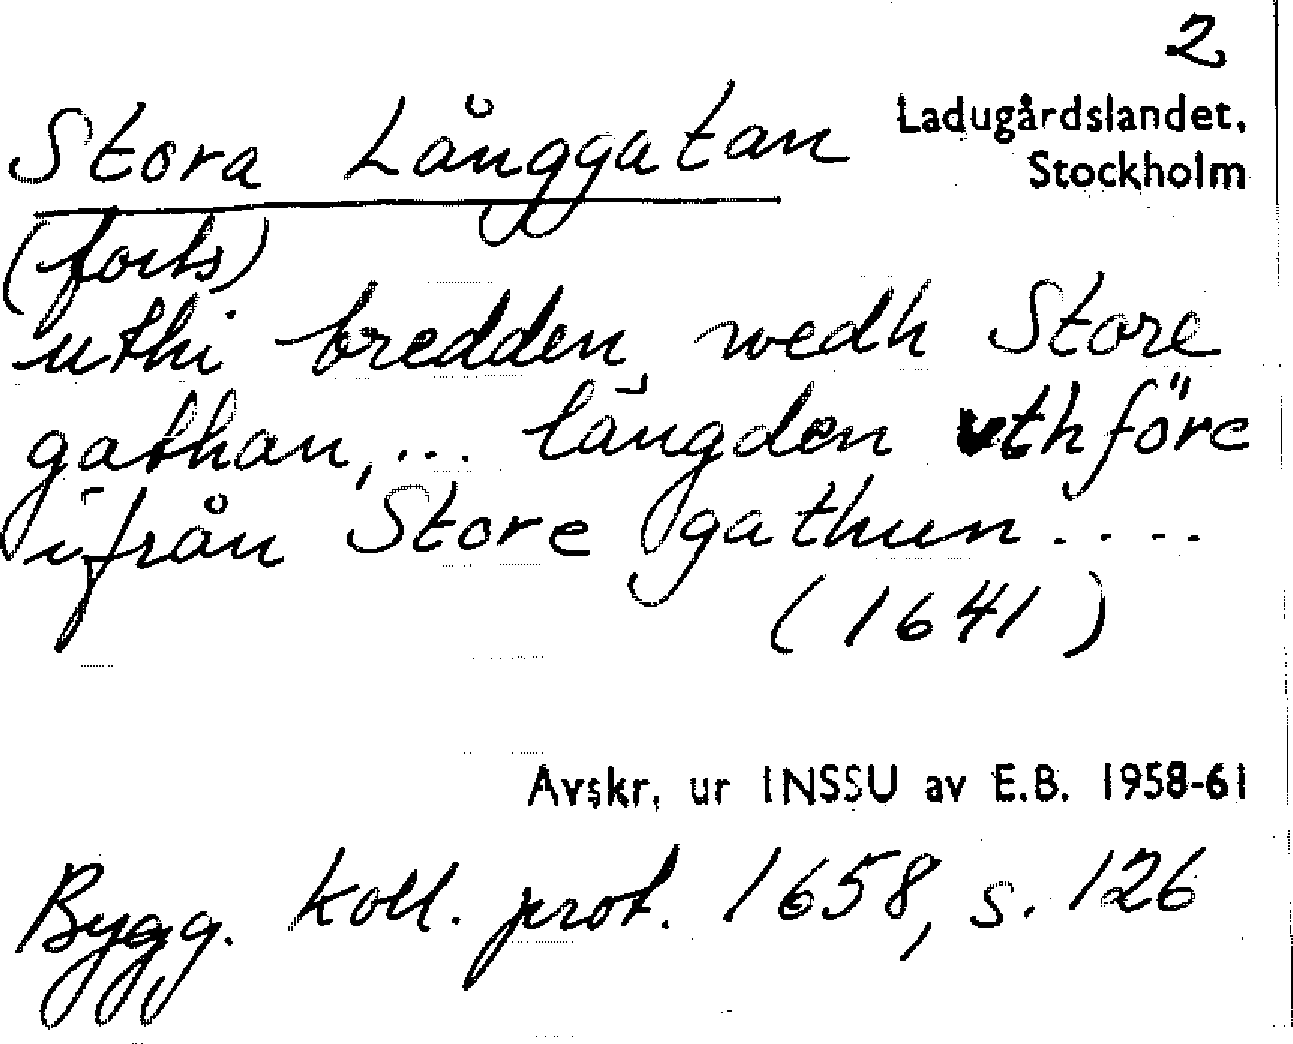 2
Stora Långgatan
Ladugårdslandet,
Stockholm
(forts)
uthi bredden, wedh Store
gathan, ... längden uthföre
ifrån Store gathun ....
(1641)
Avskr. ur INSSU av E.B. 1958-61
Bygg. koll. prot. 1658, s. 126